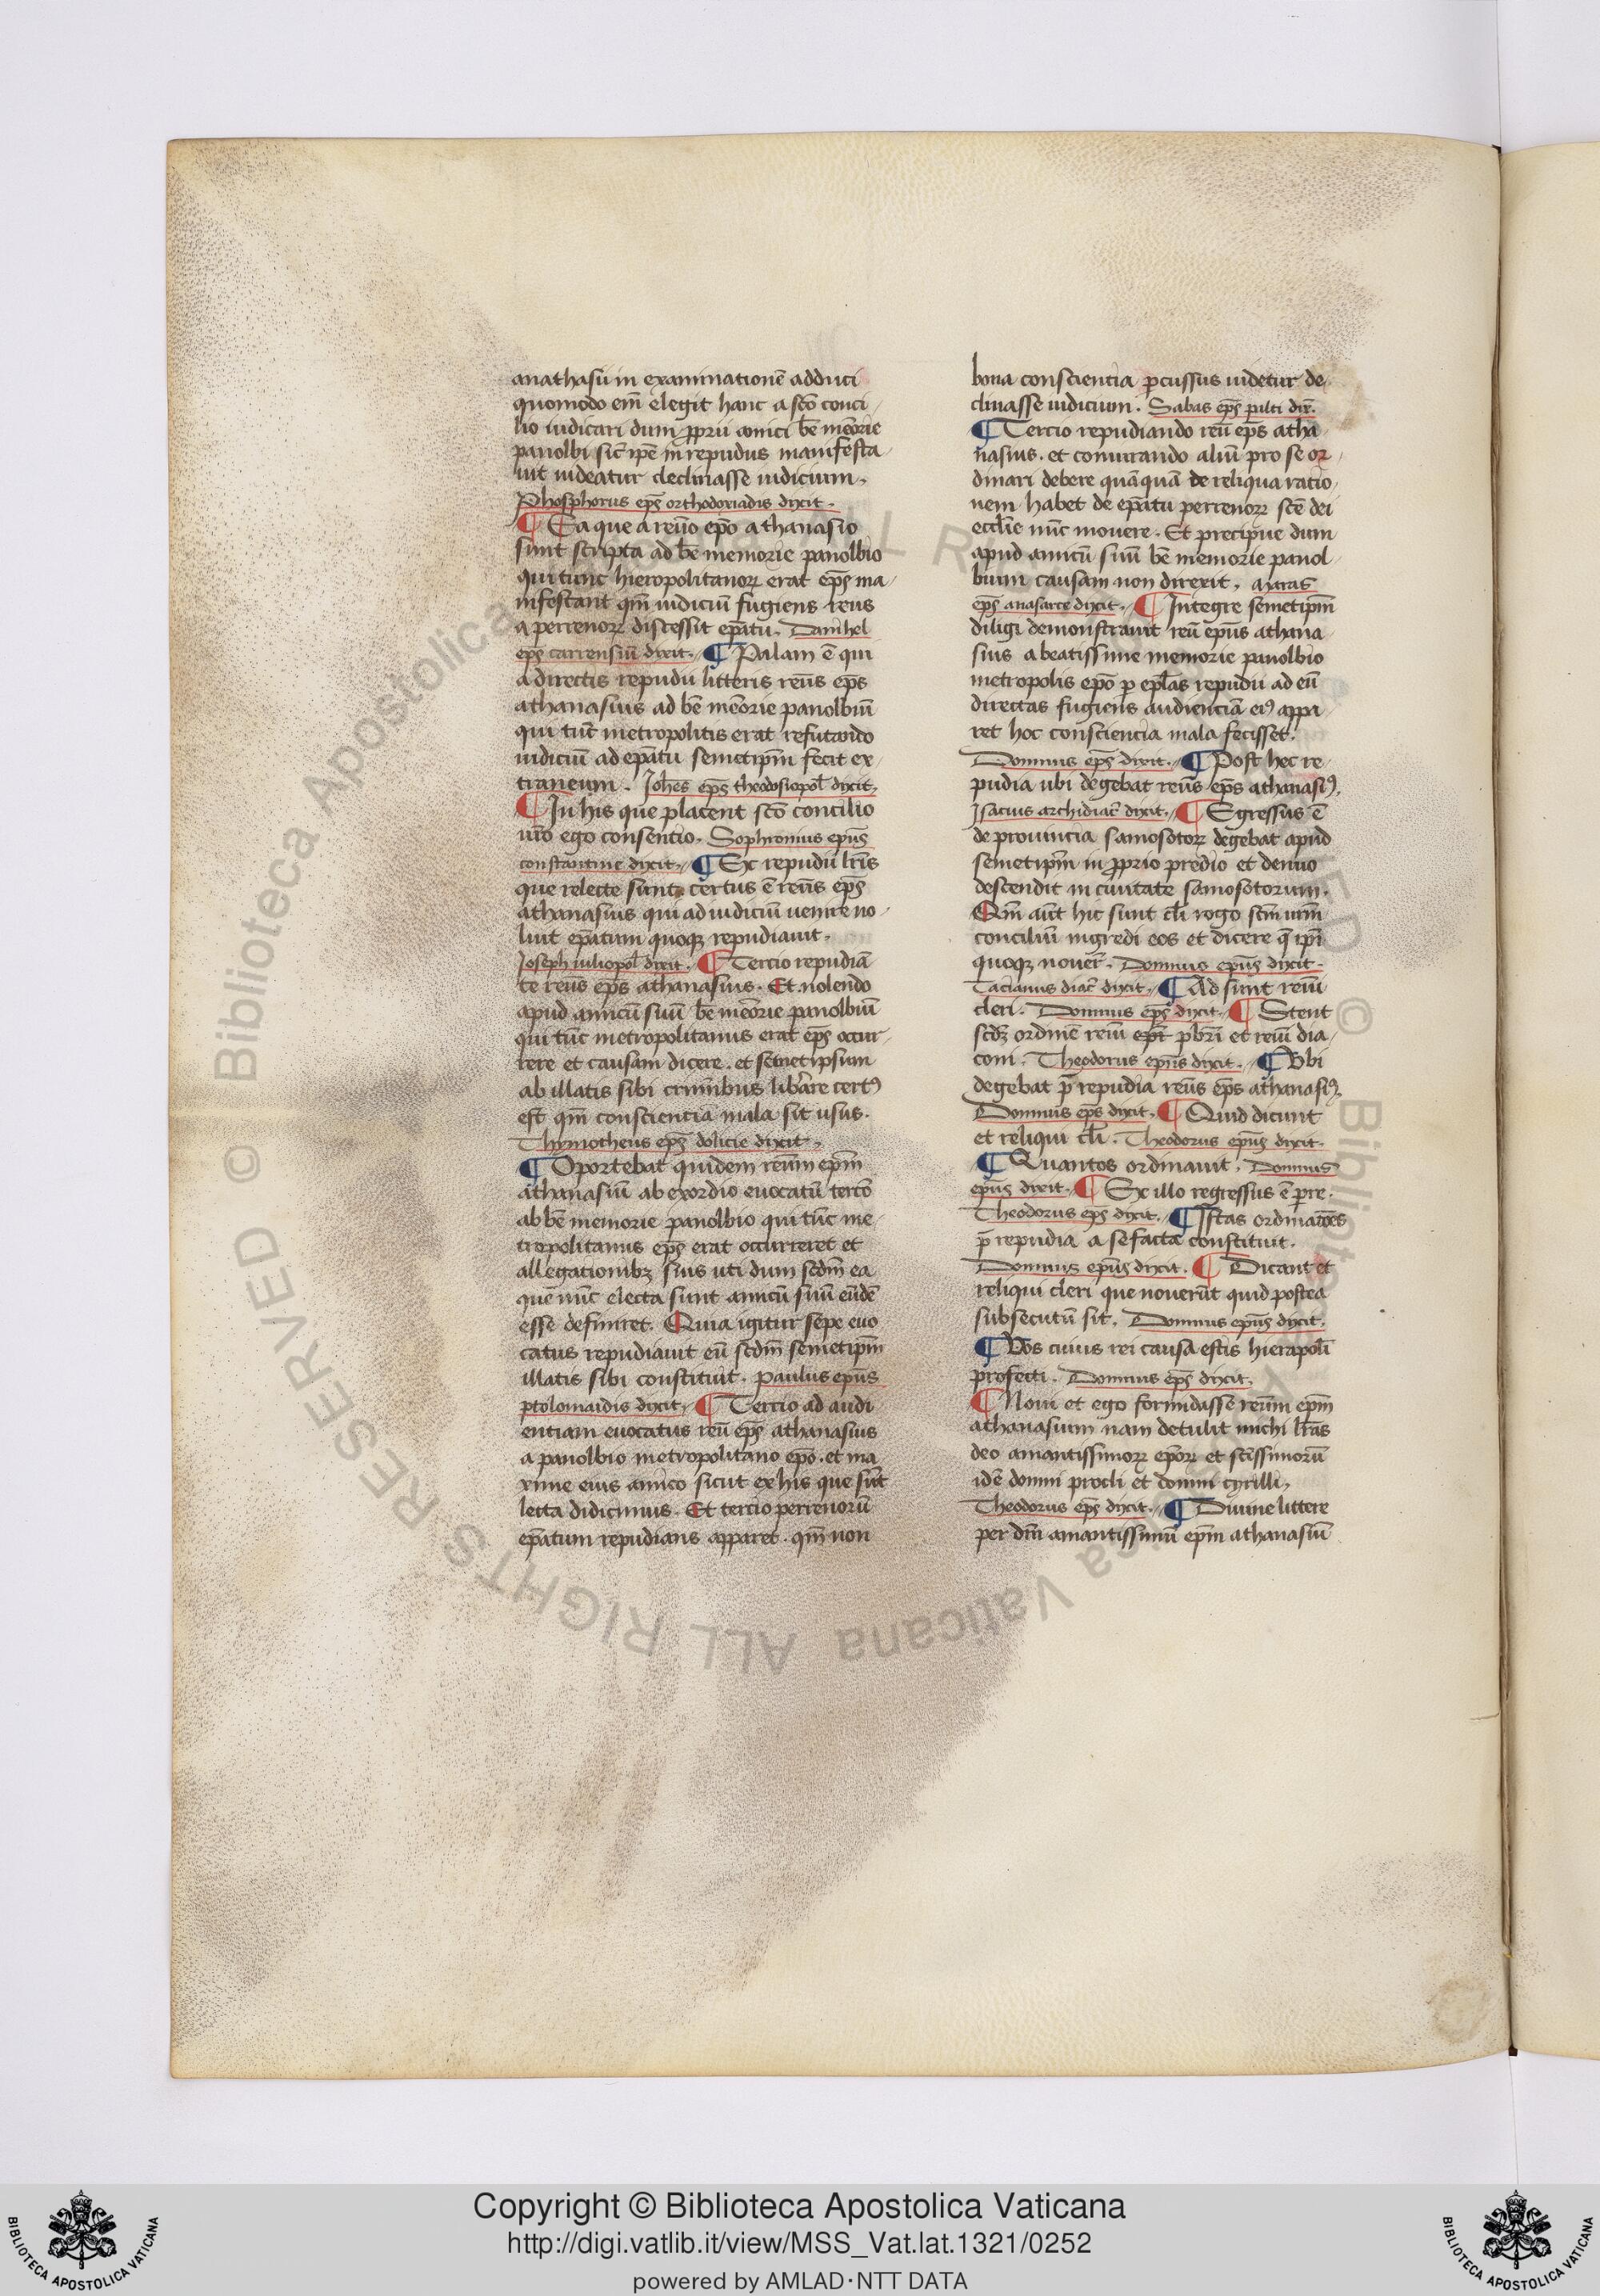 anathasiū in examinationē adduci
quomodo em̄ elegit hanc a scō conci-
lio iudicari dum ꝓprii amici bē meōrie
panolbi sic̄ ipē in repudiis manifesta-
uit uideatur declinasse iudicium.
Phosphorus ep̄s orthodoxiadis dixit.
¶ Ea que a reūo ep̄o athanasio
sunt scripta ad bē memorie panolbio
qui tunc hieropolitanoꝝ erat ep̄s ma-
nifestant qm̄ iudiciū fugiens reus
a perrenoꝝ discessit ep̄atu. Danihel
ep̄s carrensiū dixit. ¶ Palam ē qui
a directis repudii litteris reūs ep̄s
athanasius ad bē meōrie panolbiū
qui tūc metropolitis erat refutando
iudiciū ad ep̄atu semetip̄m fecit ex-
traneum. Joh̄es ep̄s theodosiopol̄ dixit.
¶ In his que placent scō concilio
ur̄o ego consentio. Sophronius ep̄us
constantine dixit. ¶ Ex repudii lr̄is
que relecte sunt certus ē reūs ep̄s
athanasius qui ad iudiciū uenire no-
luit ep̄atum quoqꝫ repudiauit.
Joseph iuliopol̄ dixit. ¶ Tercio repudiā
te reūs ep̄s athanasius. Et nolendo
apud amicū suū bē meōrie panolbiū
qui tūc metropolitanus erat ep̄s occur-
rere et causam dicere. et semetipsum
ab illatis sibi criminibus liberare certꝰ
est qm̄ conscientia mala sit usus.
Thymotheus ep̄s dolicie dixit.
¶ Oportebat quidem reūm ep̄m
athanasiū ab exordio euocatū tercō
ab bē memorie panolbio qui tūc me-
tropolitanus ep̄s erat occurreret et
allegationibꝫ suis uti dum scd̄m ea
que nūc electa sunt amicū suū eūdē
esse definiret. Quia igitur sepe euo
catus repudiauit eū scd̄m semetip̄m
illatis sibi constituit. Paulus ep̄us
ptolomaidis dixit. ¶ Tercio ad audi
entiam euocatus reū ep̄s athanasius
a panolbio metropolitano ep̄o. et ma
xime eius amico sicut ex his que sūt
lecta didicimus. Et tercio perrenorū
ep̄atum repudians apparet. qm̄ non
bona conscientia ꝑcussus uidetur de-
clinasse iudicium. Sabas ep̄s pilti dix̄.
¶ Tercio repudiando reū ep̄s atha-
nasius. et coniurando aliū pro se or-
dinari debere quāquā de reliqua ratio-
nem habet de ep̄atu perrenoꝝ scē dei
eccl̄ie nūc mouere. Et precipue dum
apud amicū suū bē memorie panol-
bium causam non direxit. ayaras
ep̄s anasarte dixit. ¶ Integre semetip̄m
diligi demonstrauit reū ep̄us athana-
sius a beatissime memorie panolbio
metropolis ep̄o ꝑ epl̄as repudii ad eū
directas fugiens audienciā eiꝰ appa-
ret hoc conscientia mala fecisset.
Domnus ep̄s dixit. ¶ Post hec re-
pudia ubi degebat reūs ep̄s athanasiꝰ.
Isacius archidiac̄ dixit. ¶ Egressus ē
de prouincia samosotoꝝ degebat apud
semetip̄m in ꝓprio predio et denuo
descendit in ciuitate samosotorum.
Qm̄ aut̄ hic sunt cl̄i rogo scm̄ urm̄
conciliū ingredi eos et dicere q̄ ip̄i
quoqꝫ nouer̄. Domnus ep̄us dixit.
Tacianus diac̄ dixit. ¶ Ad sunt reūi
cleri. Domnus ep̄s dixit. ¶ Stent
scd̄ꝫ ordinē reūi ep̄i pb̄ri et reūi dia-
coni. Theodorus ep̄us dixit. ¶ Vbi
degebat p̄ repudia reūs ep̄s athanasiꝰ.
Domnus ep̄s dixit. ¶ Quid dicunt
et reliqui cl̄i. Theodorus ep̄us dixit.
¶ Quantos ordinauit. Domnus
ep̄us dixit. ¶ Ex illo regressus ē ꝑre.
Theodorus ep̄s dixit. ¶ Istas ordinatōes
p̄ repudia a se facta constituit.
Domnus ep̄us dixit. ¶ Dicant et
reliqui cleri que nouerūt quid postea
subsecutū sit. Domnus ep̄us dixit.
¶ Vos cuius rei causa estis hierapolī
profecti. Domnus ep̄s dixit.
¶ Noui et ego formidasse reūm ep̄m
athanasium nam detulit michi lr̄as
deo amantissimoꝝ ep̄oꝝ et scīssimorū
idē domni procli et domni cyrilli.
Theodorus ep̄s dixit. ¶ Diuine littere
per dm̄ amantissimū ep̄m athanasiū
Copyright © Biblioteca Apostolica Vaticana
http://digi.vatlib.it/view/MSS_Vat.lat.1321/0252
powered by AMLAD·NTT DATA
BIBLIOTECA APOSTOLICA VATICANA
BIBLIOTECA APOSTOLICA VATICANA
© Biblioteca Apostolica Vaticana ALL RIGHTS RESERVED